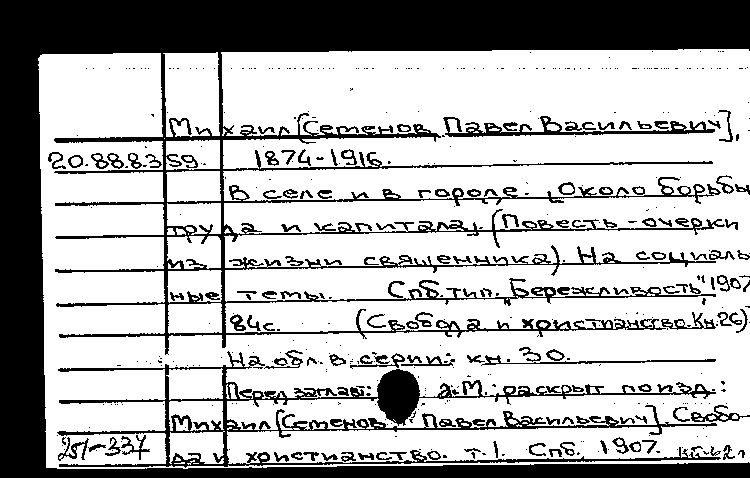 Михаил [Семенов, Павел Васильевич],
20.88.83 59. 1874-1916.
В селе и в городе. (Около борьбы
труда и капитала). (Повесть-очерки
из жизни священника). На социаль-
ные темы. Спб. тип. "Бережливость", 1907
84с. (Свобода и христианство. Кн. 26)
На обл. в серии: кн. 30.
Перед заглав.: а.М.; раскрыт по изд.:
Михаил [Семенов, Павел Васильевич]. Свобо-
251-337 да и христианство. т. 1. Спб. 1907.